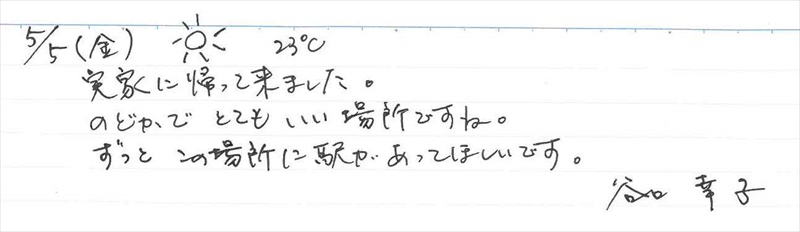 5/5(金) 23℃
実家に帰って来ました。
のどかで とても いい 場所ですね。
ずっと この場所に駅が あってほしいです。
谷口 幸子